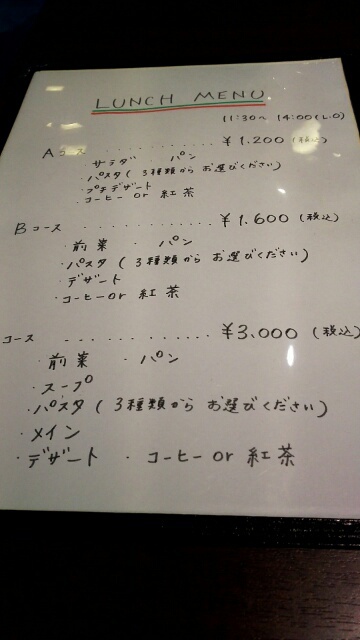 LUNCH MENU
11:30〜 14:00(L.O)
Aコース ............ ¥1.200 (税込)
・サラダ ・パン
・パスタ ( 3種類から お選びください)
・プチデザート
・コーヒー or 紅茶
Bコース ............ ¥1.600 (税込)
・前菜 ・パン
・パスタ ( 3種類から お選びください)
・デザート
・コーヒー or 紅茶
コース ............ ¥3,000 (税込)
・前菜 ・パン
・スープ
・パスタ ( 3種類から お選びください)
・メイン
・デザート ・コーヒー or 紅茶